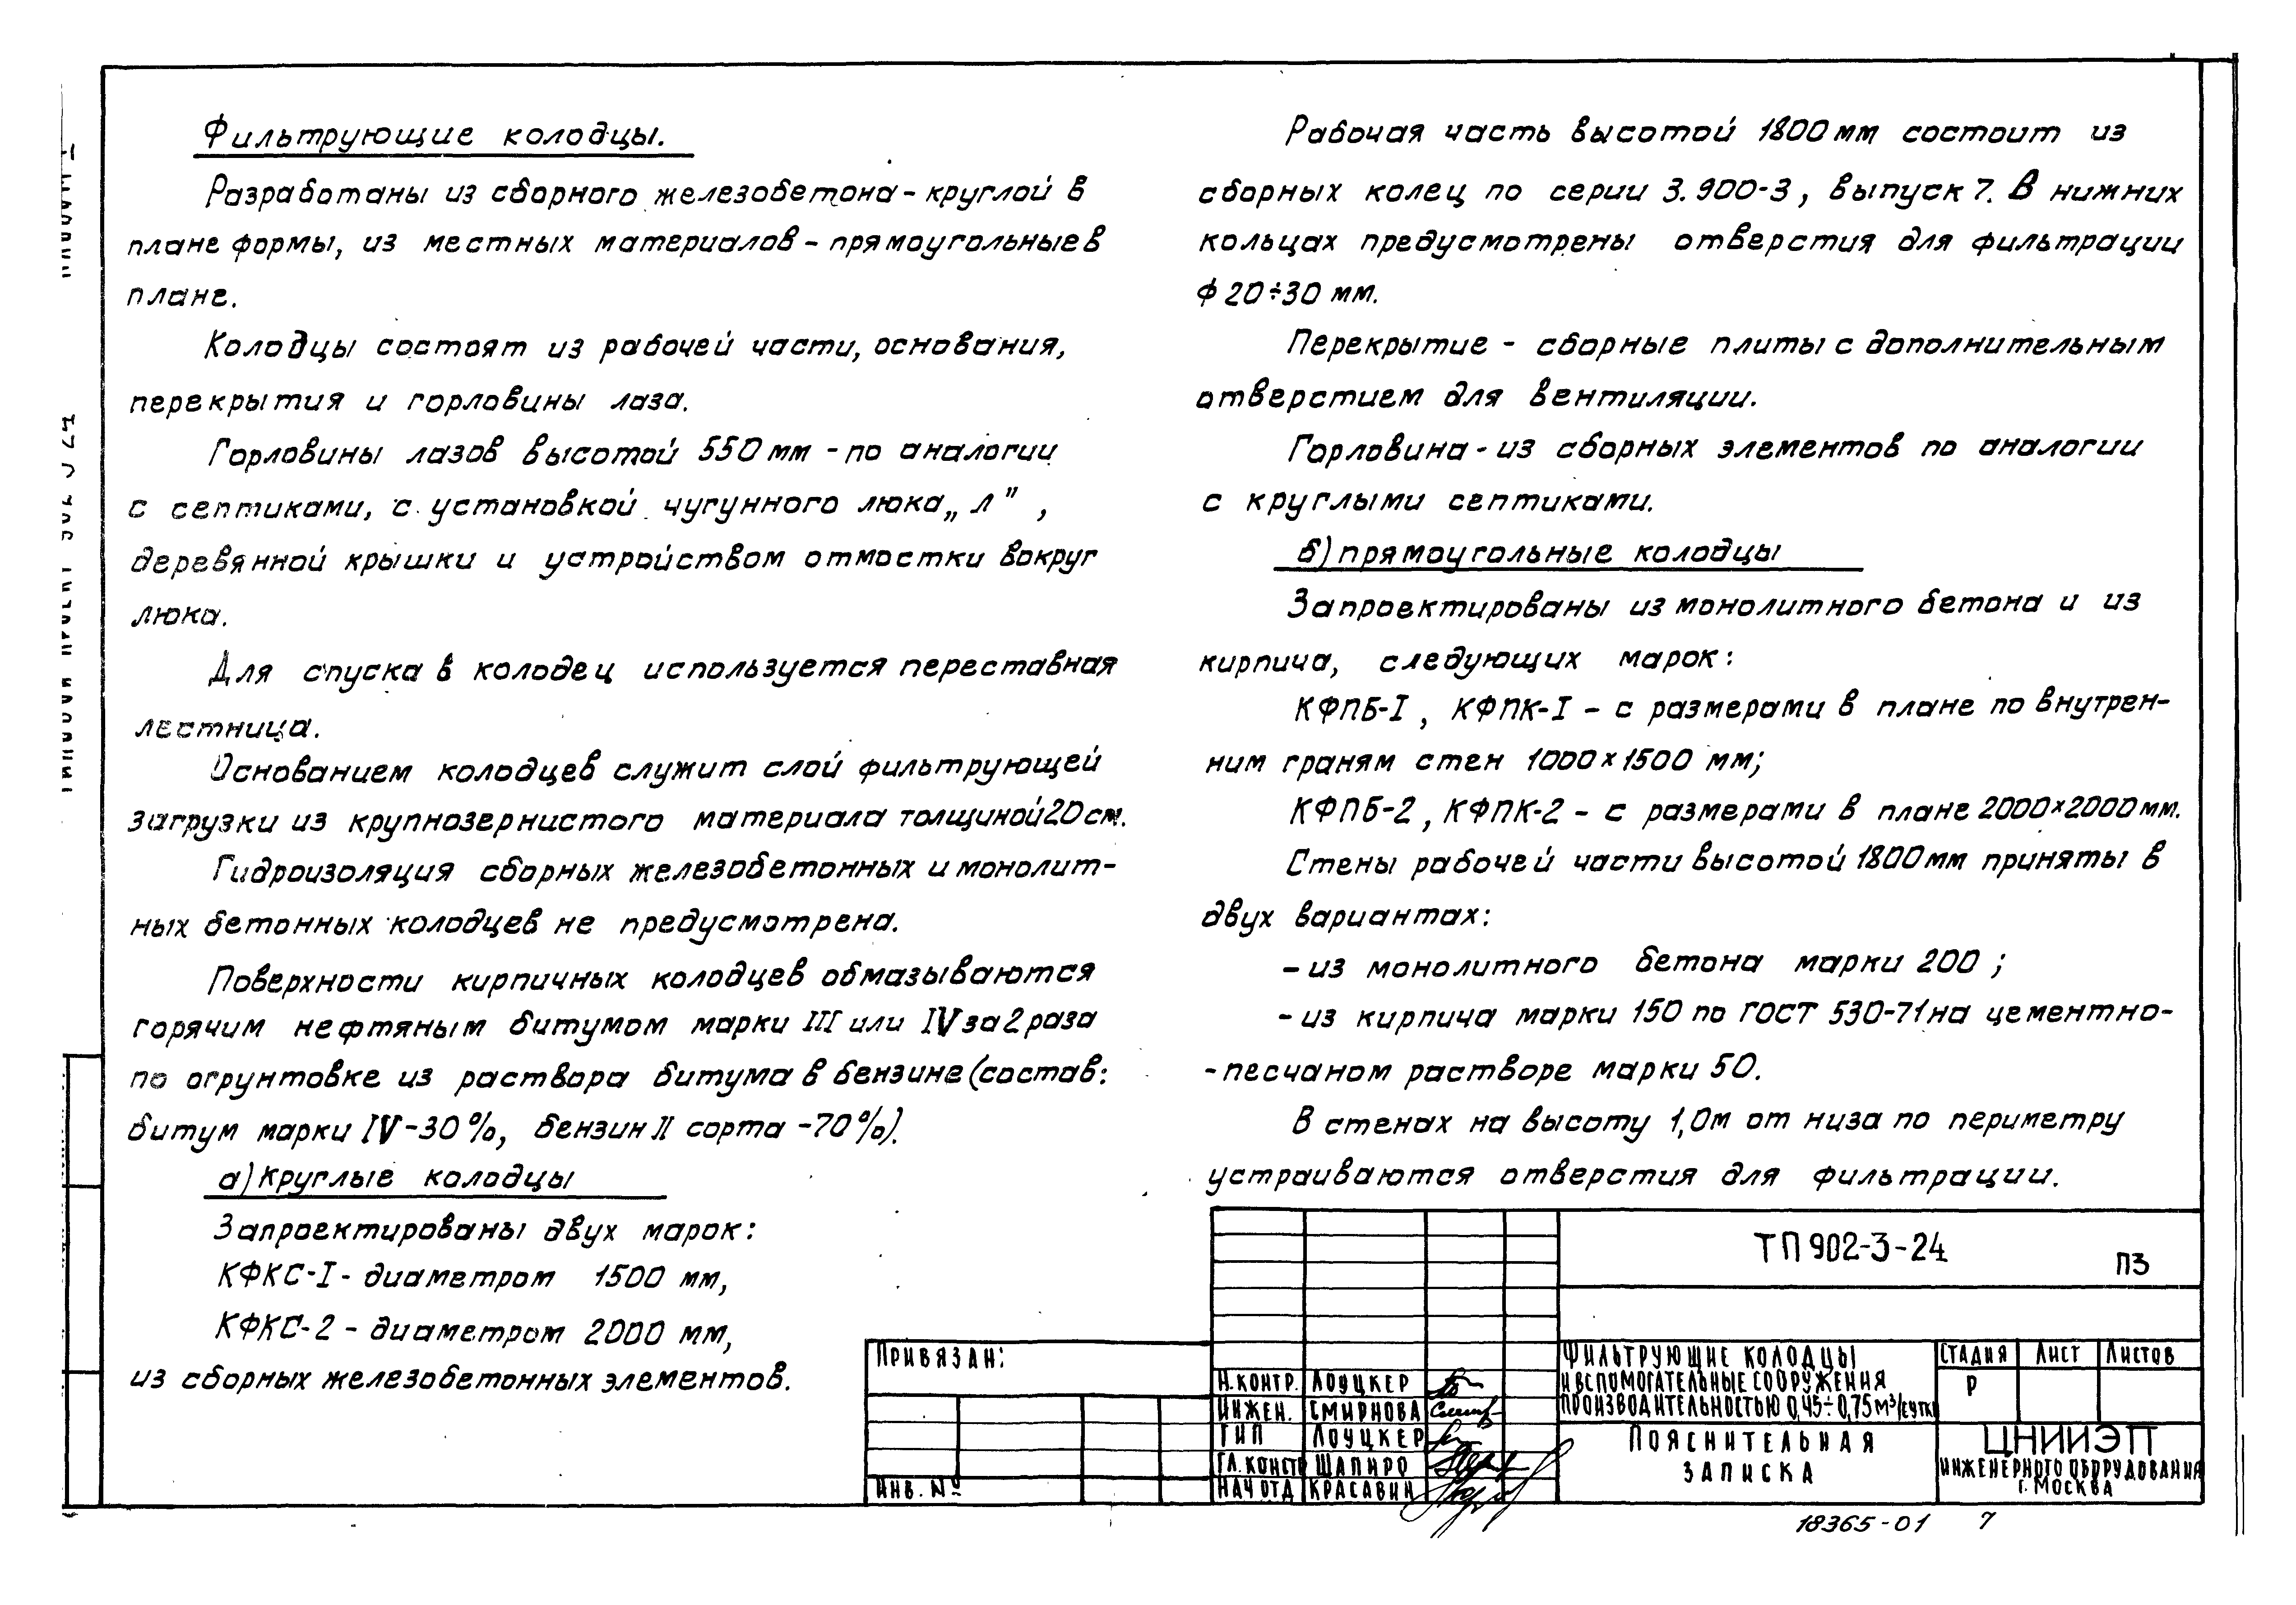 Фильтрующие колодцы.
Разработаны из сборного железобетона - круглой в
плане формы, из местных материалов - прямоугольные в
плане.
Колодцы состоят из рабочей части, основания,
перекрытия и горловины лаза.
Горловины лазов высотой 550 мм - по аналогии
с септиками, с установкой чугунного люка „Л",
деревянной крышки и устройством отмостки вокруг
люка.
Для спуска в колодец используется переставная
лестница.
Основанием колодцев служит слой фильтрующей
загрузки из крупнозернистого материала толщиной 20 см.
Гидроизоляция сборных железобетонных и монолит-
ных бетонных колодцев не предусмотрена.
Поверхности кирпичных колодцев обмазываются
горячим нефтяным битумом марки III или IV за 2 раза
по огрунтовке из раствора битума в бензине (состав:
битум марки IV-30%, бензин II сорта -70%).
а) Круглые колодцы
Запроектированы двух марок:
КФКС-I - диаметром 1500 мм,
КФКС-2 - диаметром 2000 мм,
из сборных железобетонных элементов.
Рабочая часть высотой 1800 мм состоит из
сборных колец по серии 3.900-3, выпуск 7. В нижних
кольцах предусмотрены отверстия для фильтрации
ф 20÷30 мм.
Перекрытие - сборные плиты с дополнительным
отверстием для вентиляции.
Горловина - из сборных элементов по аналогии
с круглыми септиками.
б) прямоугольные колодцы
Запроектированы из монолитного бетона и из
кирпича, следующих марок:
КФПБ-I, КФПК-I - с размерами в плане по внутрен-
ним граням стен 1000×1500 мм;
КФПБ-2, КФПК-2 - с размерами в плане 2000×2000 мм.
Стены рабочей части высотой 1800 мм приняты в
двух вариантах:
- из монолитного бетона марки 200;
- из кирпича марки 150 по ГОСТ 530-71 на цементно-
-песчаном растворе марки 50.
В стенах на высоту 1,0м от низа по периметру
устраиваются отверстия для фильтрации.
ТП 902-3-24 ПЗ
Привязан:
Инв. №
Н.контр. Лоуцкер
Инжен. Смирнова
ГИП Лоуцкер
Гл.констр Шапиро
Нач отд Красавин
Фильтрующие колодцы
и вспомогательные сооружения
производительностью 0,45÷0,75 м³/сутки
Стадия Лист Листов
Р
Пояснительная
записка
ЦНИИЭП
инженерного оборудования
г. Москва
18365-01 7